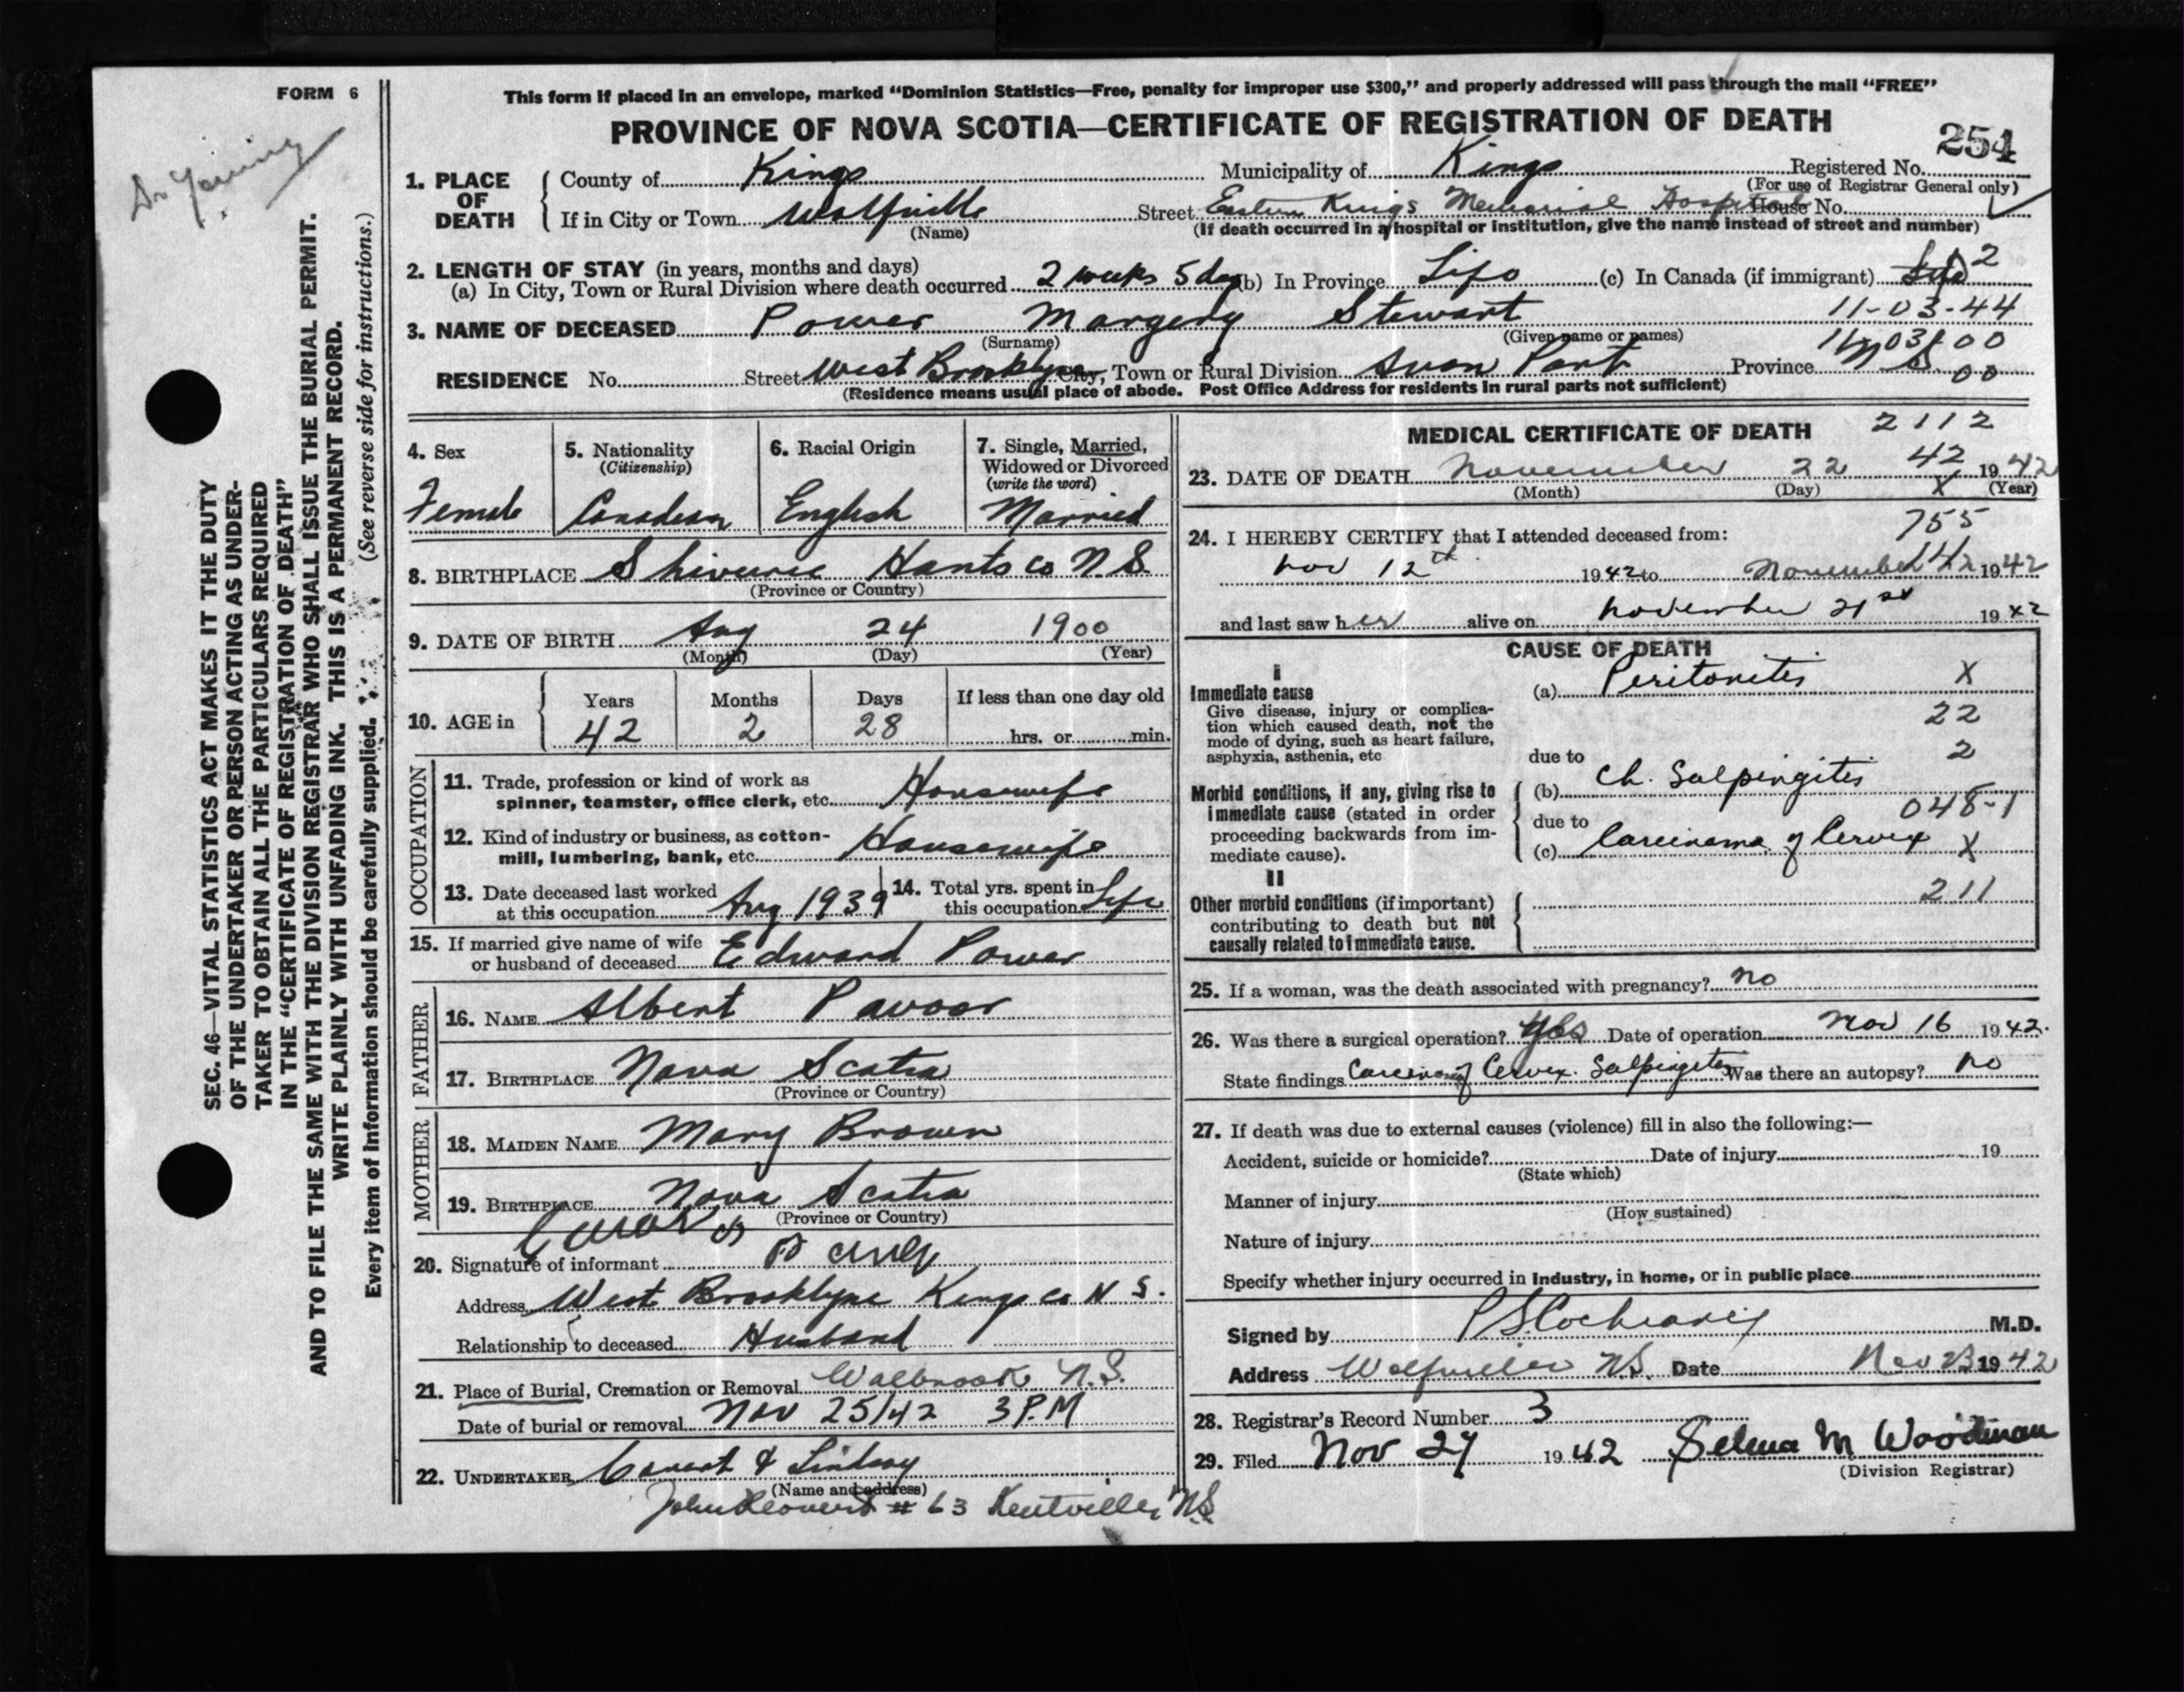 FORM 6
Dr
SEC. 46—VITAL STATISTICS ACT MAKES IT THE DUTY
OF THE UNDERTAKER OR PERSON ACTING AS UNDER-
TAKER TO OBTAIN ALL THE PARTICULARS REQUIRED
IN THE "CERTIFICATE OF REGISTRATION OF DEATH"
AND TO FILE THE SAME WITH THE DIVISION REGISTRAR WHO SHALL ISSUE THE BURIAL PERMIT.
WRITE PLAINLY WITH UNFADING INK. THIS IS A PERMANENT RECORD.
Every item of information should be carefully supplied. (See reverse side for instructions.)
This form if placed in an envelope, marked "Dominion Statistics—Free, penalty for improper use $300," and properly addressed will pass through the mail "FREE"
PROVINCE OF NOVA SCOTIA—CERTIFICATE OF REGISTRATION OF DEATH
254
1. PLACE OF DEATH County of Kings Municipality of Kings Registered No.
(For use of Registrar General only)
If in City or Town Wolfville Street Eastern Kings Memorial Hospital House No.
(Name) (If death occurred in a hospital or institution, give the name instead of street and number)
2. LENGTH OF STAY (in years, months and days)
(a) In City, Town or Rural Division where death occurred 2 weeks 5 days (b) In Province Life (c) In Canada (if immigrant) Life 2
11-03-44
3. NAME OF DECEASED Power Margery Stewart
(Surname) (Given name or names)
11-03-00
RESIDENCE No. Street West Brooklyne City, Town or Rural Division Avon Port Province N S
00
(Residence means usual place of abode. Post Office Address for residents in rural parts not sufficient)
4. Sex
Female
5. Nationality
(Citizenship)
Canadian
6. Racial Origin
English
7. Single, Married,
Widowed or Divorced
(write the word)
Married
8. BIRTHPLACE Shiverie Hants co N.S.
(Province or Country)
9. DATE OF BIRTH Aug 24 1900
(Month) (Day) (Year)
10. AGE in Years Months Days If less than one day old
42 2 28 hrs. or min.
OCCUPATION
11. Trade, profession or kind of work as
spinner, teamster, office clerk, etc. Housewife
12. Kind of industry or business, as cotton-
mill, lumbering, bank, etc. Housewife
13. Date deceased last worked
at this occupation Aug 1939
14. Total yrs. spent in
this occupation Life
15. If married give name of wife
or husband of deceased Edward Power
FATHER
16. NAME Albert
17. BIRTHPLACE Nova Scotia
(Province or Country)
MOTHER
18. MAIDEN NAME Mary Brown
19. BIRTHPLACE Nova Scotia
(Province or Country)
20. Signature of informant
Address West Brooklyne Kings co N S.
Relationship to deceased Husband
21. Place of Burial, Cremation or Removal Walbrook N.S.
Date of burial or removal Nov 25/42 3 P.M
22. UNDERTAKER Covert & Lindsay
(Name and address)
# 63 Kentville, N.S.
MEDICAL CERTIFICATE OF DEATH 2112
42
23. DATE OF DEATH November 22 1942
(Month) (Day) X (Year)
755
24. I HEREBY CERTIFY that I attended deceased from:
Nov 12th 1942 to November 1942
142
and last saw her alive on November 21st 1942
CAUSE OF DEATH
I
Immediate cause
Give disease, injury or complica-
tion which caused death, not the
mode of dying, such as heart failure,
asphyxia, asthenia, etc
(a) Peritonitis X
22
2
due to
Morbid conditions, if any, giving rise to
immediate cause (stated in order
proceeding backwards from im-
mediate cause).
(b) Ch. Salpingitis
048-1
due to
(c) Carcinoma of Cervex X
II
Other morbid conditions (if important)
contributing to death but not
causally related to immediate cause.
211
25. If a woman, was the death associated with pregnancy? No
26. Was there a surgical operation? Yes Date of operation Nov 16 1942.
State findings Carcinoma of Cervex. Salpingitis Was there an autopsy? No
27. If death was due to external causes (violence) fill in also the following:—
Accident, suicide or homicide? Date of injury 19
(State which)
Manner of injury
(How sustained)
Nature of injury
Specify whether injury occurred in industry, in home, or in public place
Signed by M.D.
Address Wolfville N.S. Date Nov 23 1942
28. Registrar's Record Number 3
29. Filed Nov 27 1942 Selena M Woodman
(Division Registrar)